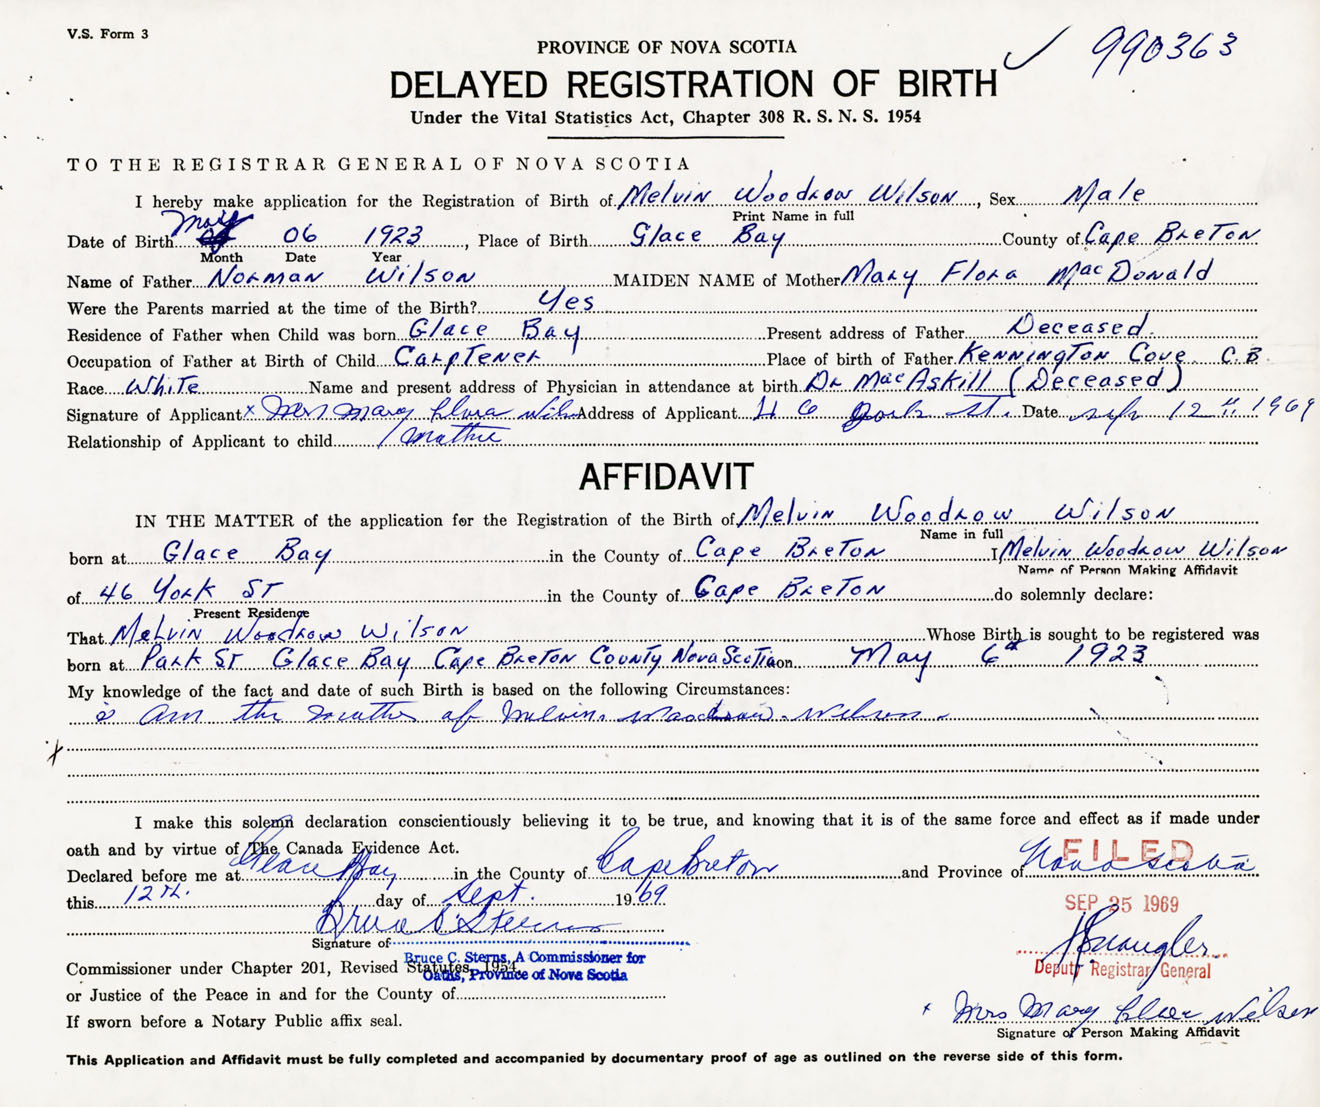 V.S. Form 3
PROVINCE OF NOVA SCOTIA
✓ 990363
DELAYED REGISTRATION OF BIRTH
Under the Vital Statistics Act, Chapter 308 R. S. N. S. 1954
TO THE REGISTRAR GENERAL OF NOVA SCOTIA
I hereby make application for the Registration of Birth of Melvin Woodrow Wilson, Sex Male
Print Name in full
Date of Birth May 06 1923, Place of Birth Glace Bay County of Cape Breton
Month Date Year
Name of Father Norman Wilson MAIDEN NAME of Mother Mary Flora MacDonald
Were the Parents married at the time of the Birth? Yes
Residence of Father when Child was born Glace Bay Present address of Father Deceased.
Occupation of Father at Birth of Child Carptener Place of birth of Father Kennington Cove C.B.
Race White Name and present address of Physician in attendance at birth Dr MacAskill (Deceased)
Signature of Applicant x Mrs Mary Flora Wilson Address of Applicant 46 York St. Date Sept 12th 1969
Relationship of Applicant to child Mother
AFFIDAVIT
IN THE MATTER of the application for the Registration of the Birth of Melvin Woodrow Wilson
Name in full
born at Glace Bay in the County of Cape Breton I Melvin Woodrow Wilson
Name of Person Making Affidavit
of 46 York St in the County of Cape Breton do solemnly declare:
Present Residence
That Melvin Woodrow Wilson Whose Birth is sought to be registered was
born at Park St Glace Bay Cape Breton County Nova Scotia on May 6th 1923
My knowledge of the fact and date of such Birth is based on the following Circumstances:
i am the mother of Melvin Woodrow Wilson.
x
I make this solemn declaration conscientiously believing it to be true, and knowing that it is of the same force and effect as if made under
oath and by virtue of The Canada Evidence Act.
FILED
Declared before me at Glace Bay in the County of Cape Breton and Province of Nova Scotia
this 12th. day of Sept. 1969
SEP 25 1969
Bruce C. Sterns
Signature of
Bruce C. Sterns, A Commissioner for
Oaths, Province of Nova Scotia
Deputy Registrar General
Commissioner under Chapter 201, Revised Statutes, 1954
or Justice of the Peace in and for the County of
If sworn before a Notary Public affix seal.
x Mrs Mary Flora Wilson
Signature of Person Making Affidavit
This Application and Affidavit must be fully completed and accompanied by documentary proof of age as outlined on the reverse side of this form.